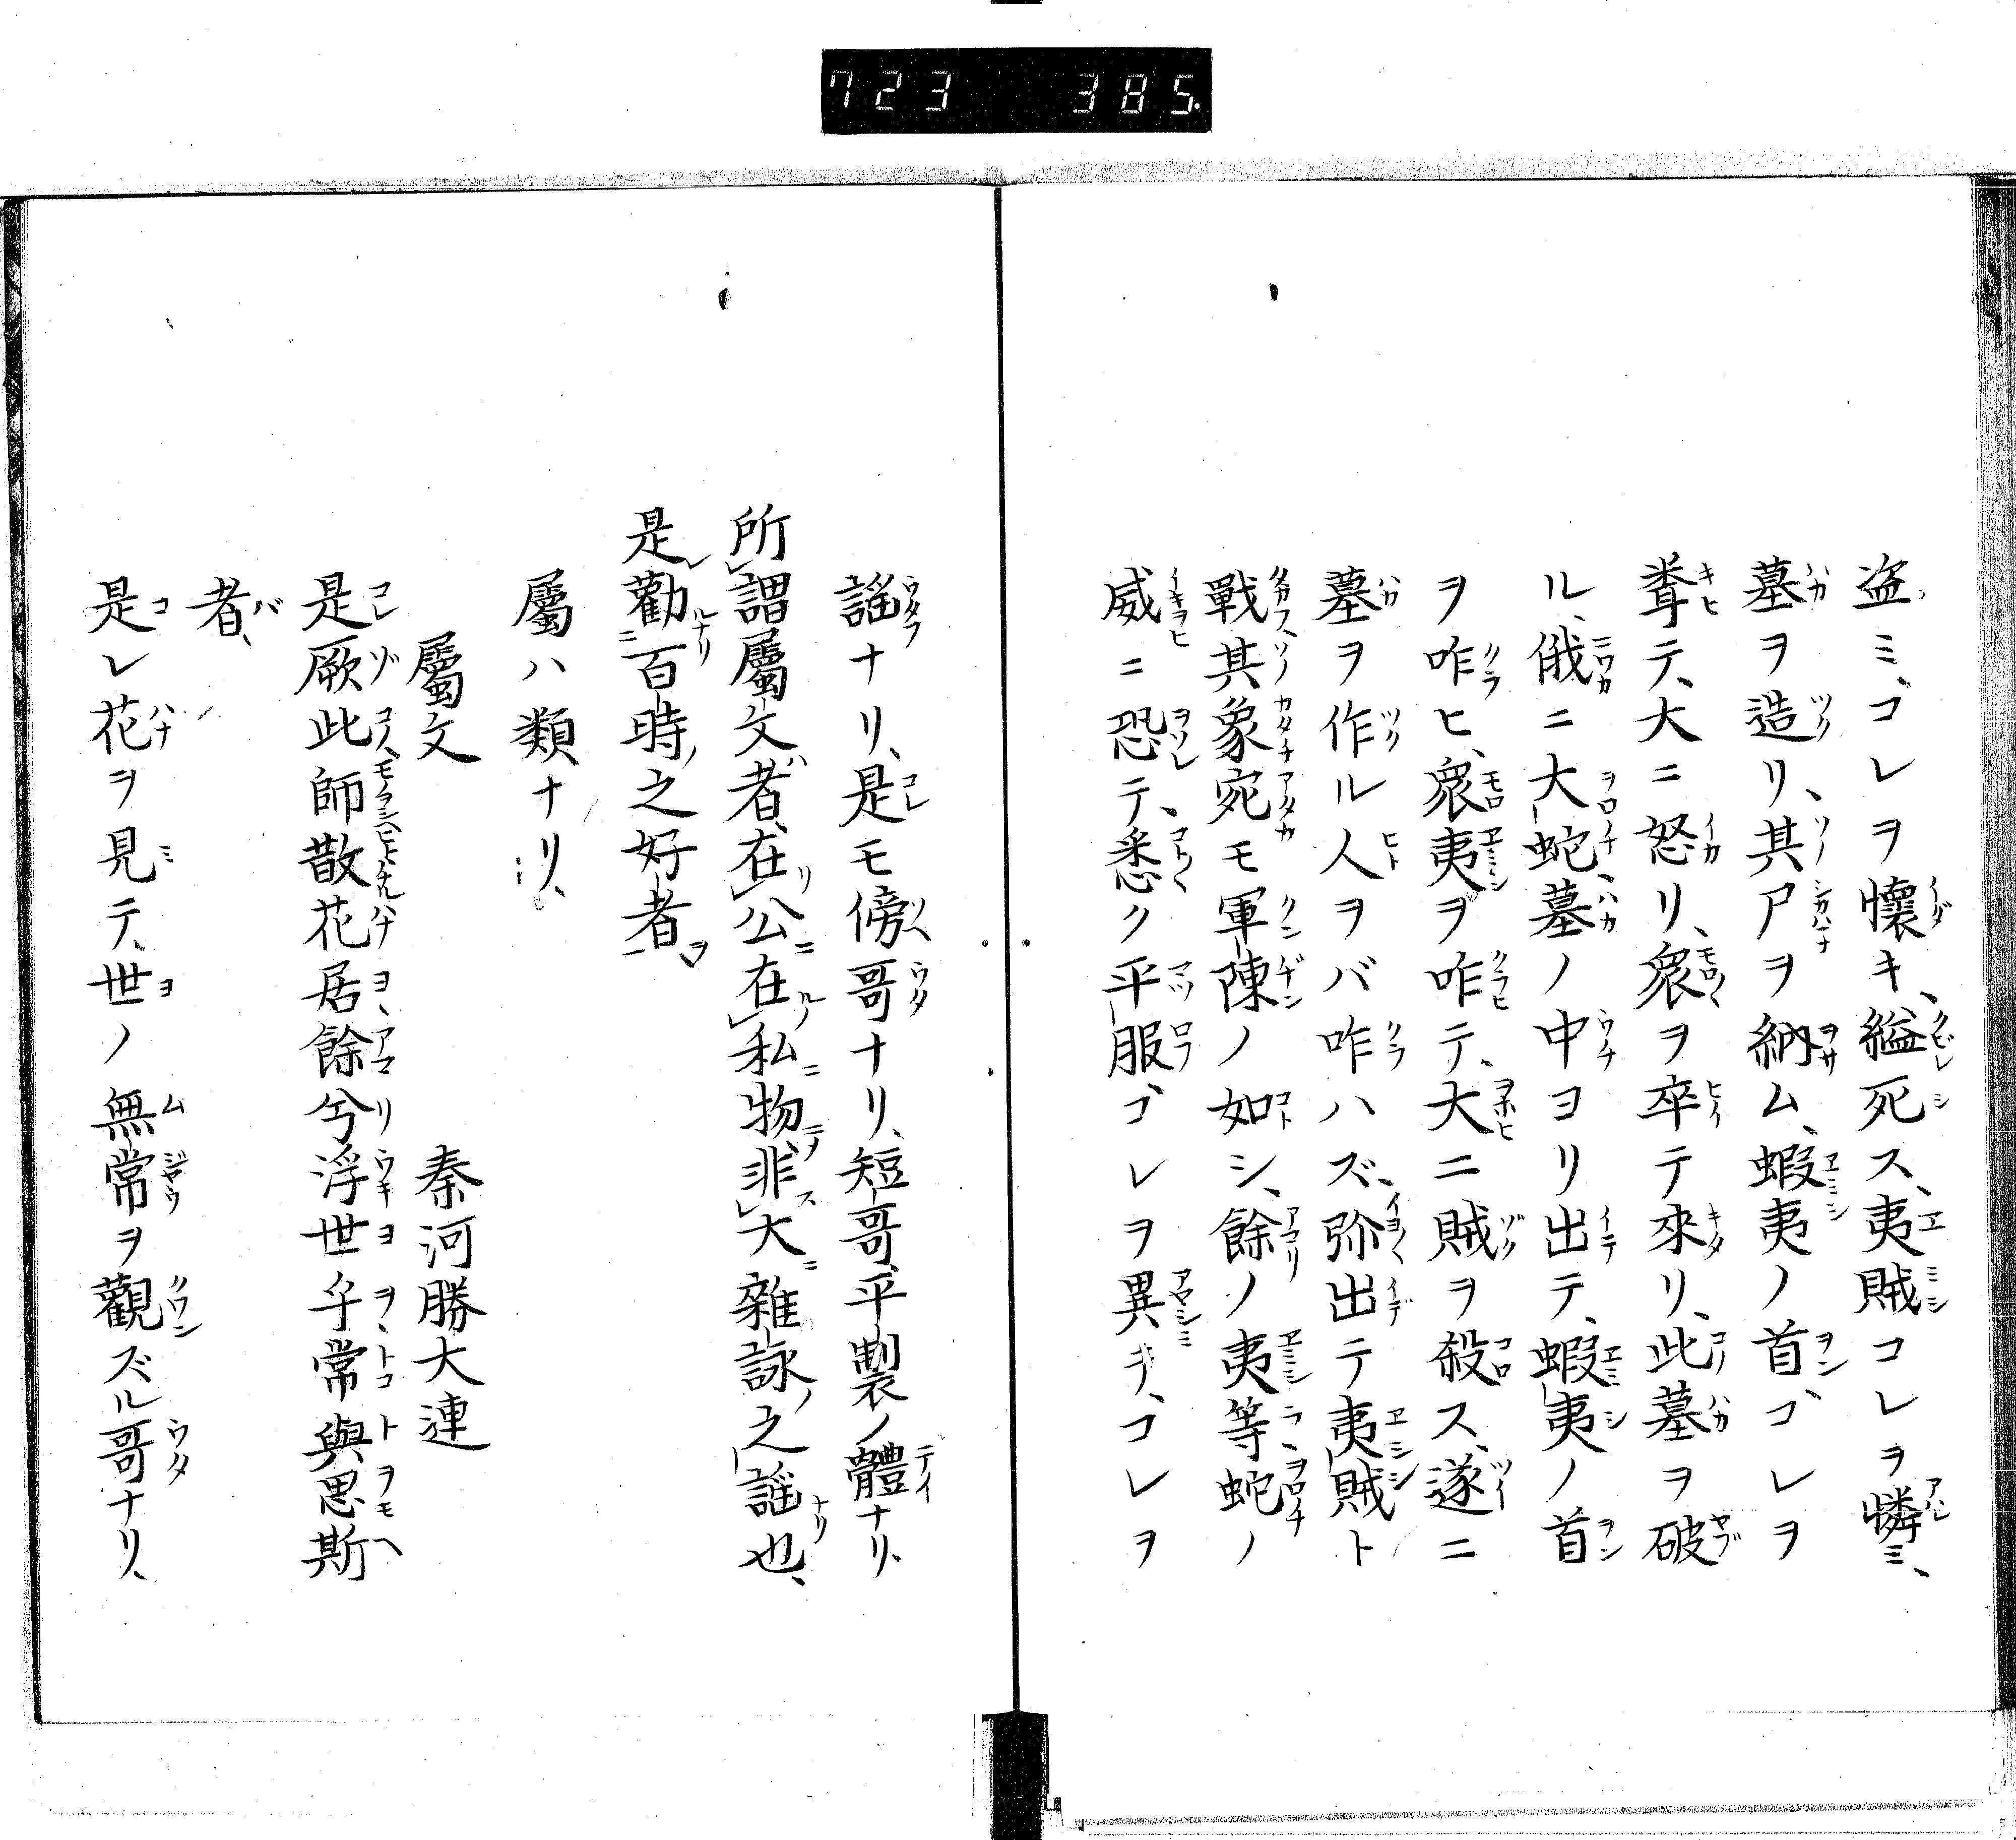 723 385
盗ミ、コレヲ懷キ、縊死ス、夷賊コレヲ憐ミ、
墓ヲ造リ、其尸ヲ納ム、蝦夷ノ首、コレヲ
聋テ、大ニ怒リ、衆ヲ卒テ來リ、此墓ヲ破
ル、俄ニ大蛇墓ノ中ヨリ出テ、蝦夷ノ首
ヲ咋ヒ、衆夷ヲ咋テ、大ニ賊ヲ殺ス、遂ニ
墓ヲ作ル人ヲバ咋ハズ、弥出テ夷賊ト
戰、其象宛モ軍陳ノ如シ、餘ノ夷等、蛇ノ
威ニ恐テ、悉ク平服、コレヲ異キ、コレヲ
謡ナリ、是モ傍哥ナリ、短哥、平製ノ體ナリ、
所謂屬文者、在公在私物、非大雜詠之謡也、
是勸百時之好者
屬ハ類ナリ、
屬文 秦河勝大連
是厥此師散花居餘兮浮世乎常與思斯
者、
是レ花ヲ見テ、世ノ無常ヲ觀ズル哥ナリ、